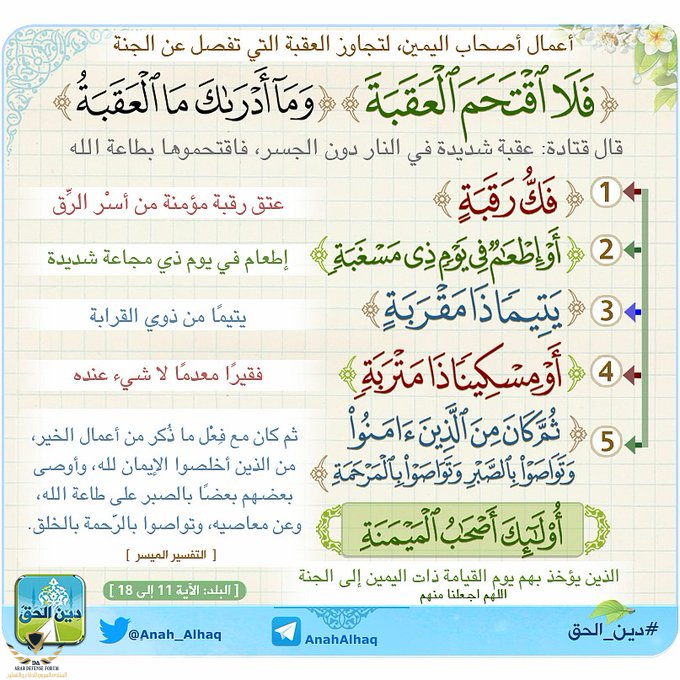 أعمال أصحاب اليمين، لتجاوز العقبة التي تفصل عن الجنة
﴿فَلَا ٱقۡتَحَمَ ٱلۡعَقَبَةَ﴾ ﴿وَمَآ أَدۡرَىٰكَ مَا ٱلۡعَقَبَةُ﴾
قال قتادة: عقبة شديدة في النار دون الجسر، فاقتحموها بطاعة الله
1 ﴿فَكُّ رَقَبَةٍ﴾ عتق رقبة مؤمنة من أسْر الرِّق
2 ﴿أَوۡ إِطۡعَٰمٞ فِي يَوۡمٖ ذِي مَسۡغَبَةٖ﴾ إطعام في يوم ذي مجاعة شديدة
3 ﴿يَتِيمٗا ذَا مَقۡرَبَةٍ﴾ يتيمًا من ذوي القرابة
4 ﴿أَوۡ مِسۡكِينٗا ذَا مَتۡرَبَةٖ﴾ فقيرًا معدمًا لا شيء عنده
5 ﴿ثُمَّ كَانَ مِنَ ٱلَّذِينَ ءَامَنُواْ
وَتَوَاصَوۡاْ بِٱلصَّبۡرِ وَتَوَاصَوۡاْ بِٱلۡمَرۡحَمَةِ﴾
ثم كان مع فِعْل ما ذُكر من أعمال الخير،
من الذين أخلصوا الإيمان لله، وأوصى
بعضهم بعضًا بالصبر على طاعة الله،
وعن معاصيه، وتواصوا بالرّحمة بالخلق.
[ التفسير الميسر ]
﴿أُوْلَٰٓئِكَ أَصۡحَٰبُ ٱلۡمَيۡمَنَةِ﴾
الذين يؤخذ بهم يوم القيامة ذات اليمين إلى الجنة
اللهم اجعلنا منهم
[ البلد: الآية 11 إلى 18 ]
#دين_الحق
AnahAlhaq
@Anah_Alhaq
دين الحق
DA
ARAB DEFENSE FORUM
المنتدى العربي للدفاع والتسليح